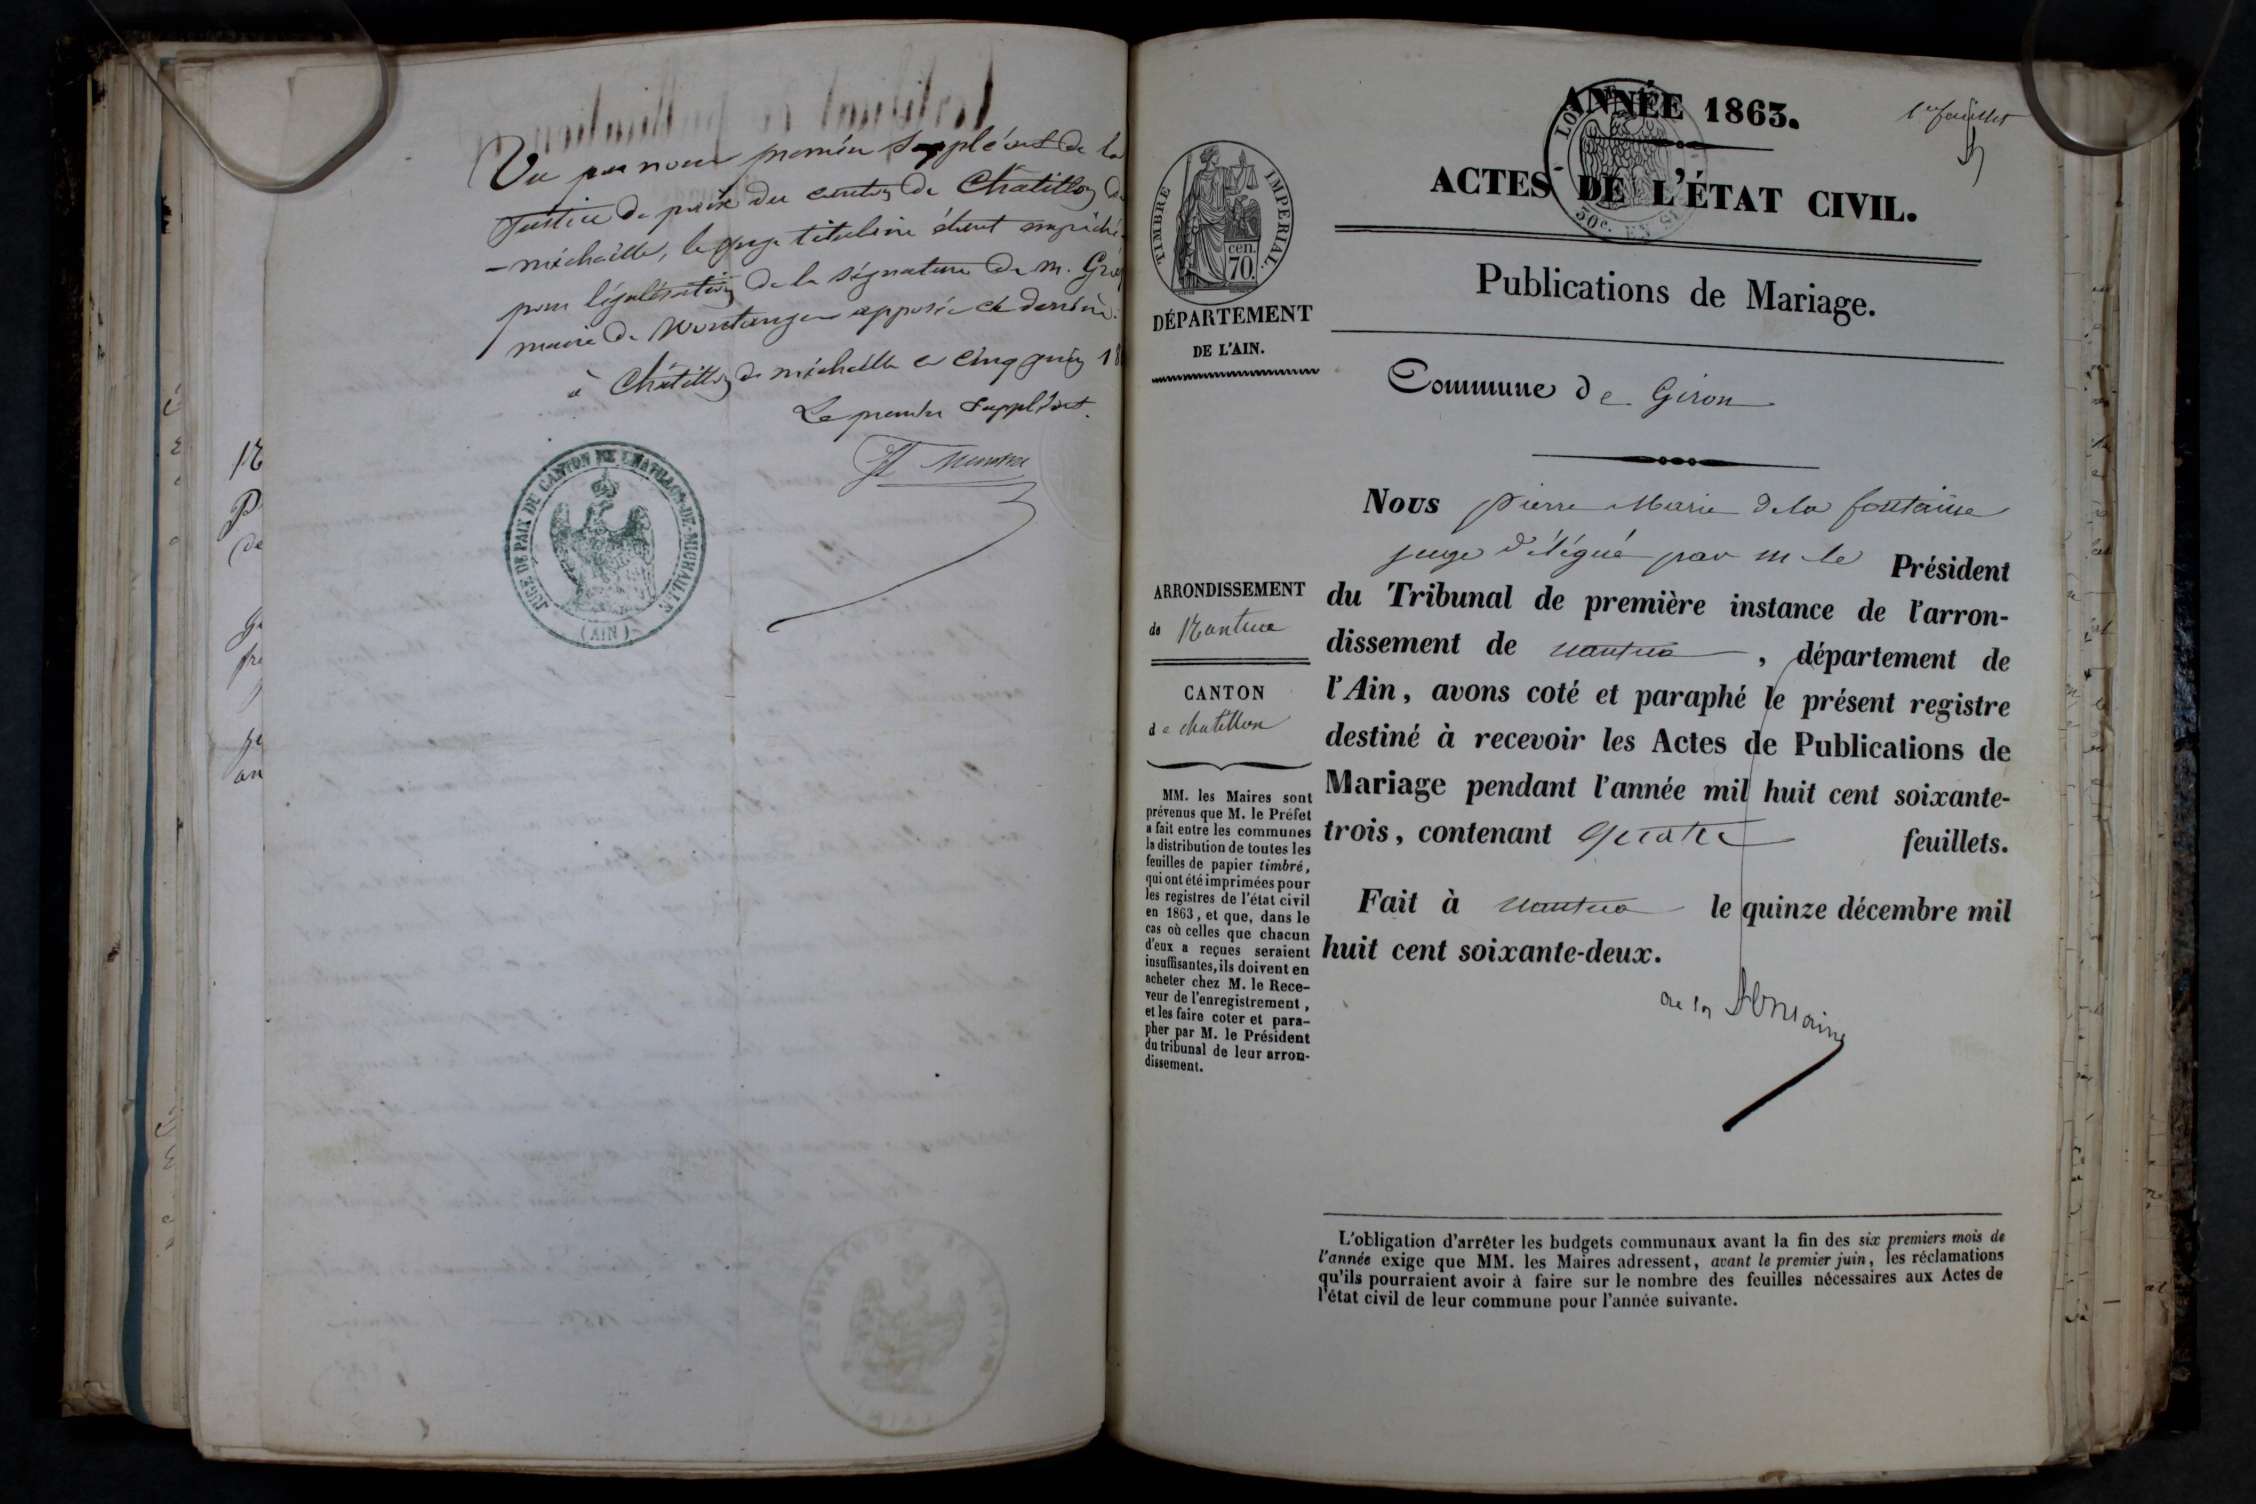 Vu par nous premier suppléant de la
Justice de paix du canton de Châtillon de
-michaille, le juge titulaire étant empêché
pour légalisation de la signature de m.
maire de montanges apposée ci derrière.
à Châtillon de michaille ce cinq juin 18
Le premier suppléant.
JUGE DE PAIX DU CANTON DE CHATILLON-DE-MICHAILLE
(AIN)
1er feuillet
ANNÉE 1863.
ACTES DE L'ÉTAT CIVIL.
50c. EN SUS
TIMBRE IMPERIAL.
cen.
70.
DÉPARTEMENT
DE L'AIN.
Publications de Mariage.
Commune de Giron
ARRONDISSEMENT
de Nantua
CANTON
de chatillon
MM. les Maires sont
prévenus que M. le Préfet
a fait entre les communes
la distribution de toutes les
feuilles de papier timbré,
qui ont été imprimées pour
les registres de l'état civil
en 1863, et que, dans le
cas où celles que chacun
d'eux a reçues seraient
insuffisantes, ils doivent en
acheter chez M. le Rece-
veur de l'enregistrement,
et les faire coter et para-
pher par M. le Président
du tribunal de leur arron-
dissement.
Nous pierre Marie de la fontaine
juge délégué par m le Président
du Tribunal de première instance de l'arron-
dissement de nantua, département de
l'Ain, avons coté et paraphé le présent registre
destiné à recevoir les Actes de Publications de
Mariage pendant l'année mil huit cent soixante-
trois, contenant quatre feuillets.
Fait à nantua le quinze décembre mil
huit cent soixante-deux.
de la fontaine
L'obligation d'arrêter les budgets communaux avant la fin des six premiers mois de
l'année exige que MM. les Maires adressent, avant le premier juin, les réclamations
qu'ils pourraient avoir à faire sur le nombre des feuilles nécessaires aux Actes de
l'état civil de leur commune pour l'année suivante.